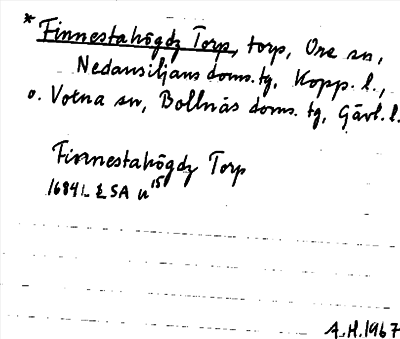 * Finnestahögdz Torp, torp, Ore sn,
Nedansiljans doms. tg, Kopp. l.,
o. Voxna sn, Bollnäs doms. tg, Gävl. l.
Finnestahögdz Torp
1684 L ESA u 15
A.H. 1967